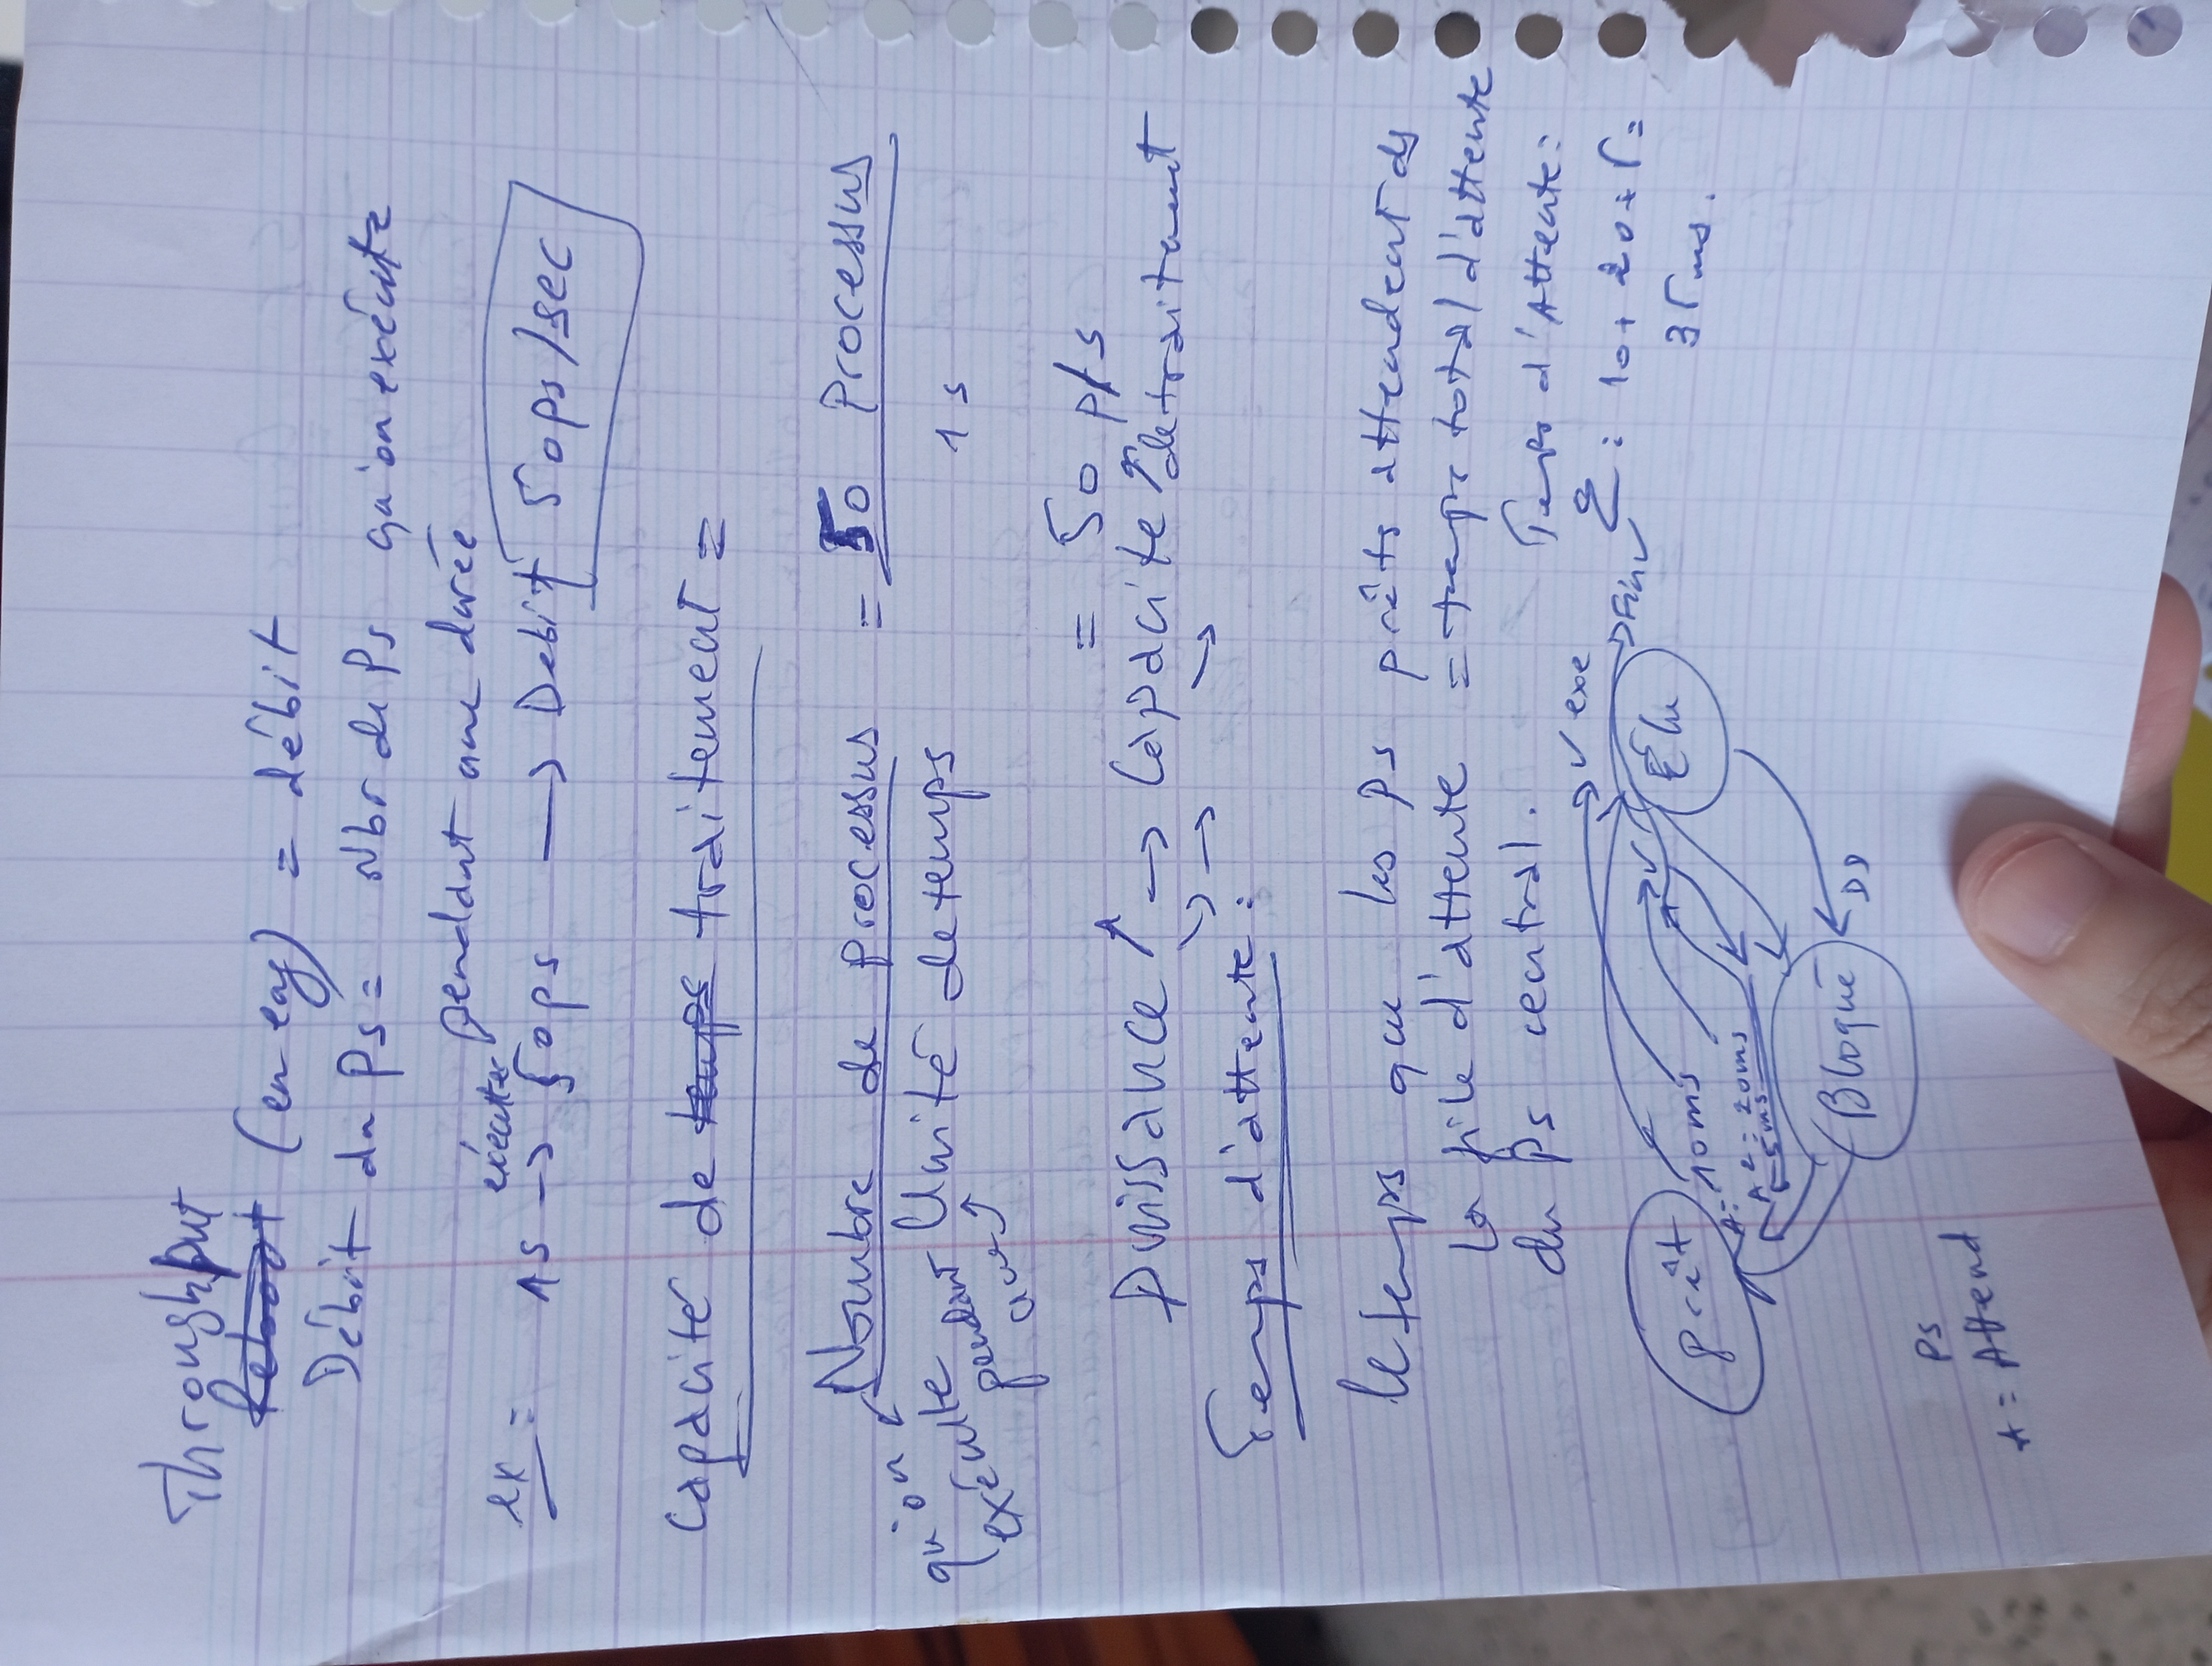 Throughput
(en eng) = débit
Débit du Ps = Nbr de Ps qu'on exécute
pendant une durée
ex = 1s → exécuter 50ps → Debit 50ps/sec
Capacité de traitement =
Nombre de processus = 50 Processus
qu'on exécute pendant une Unité de temps 1s
= 50 p/s
Puissance ↑ → Capacite ↑ de traitement
↘ → ↘
Temps d'attente :
le temps que les Ps prêts attendent ds
la file d'attente = temps total d'attente
du Ps central.
Temps d'Attente :
Σ : 10 + 20 + 5 =
35 ms.
✓ exe
Fin ✓
prêt
Élu
A = 10ms
A 2 = 20ms
5ms
Bloqué
Ps
A = Attend